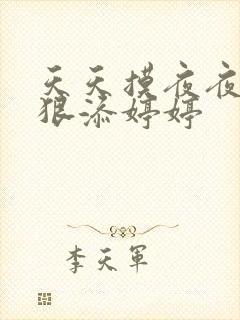 天天摸夜夜
狠添婷婷
李天军